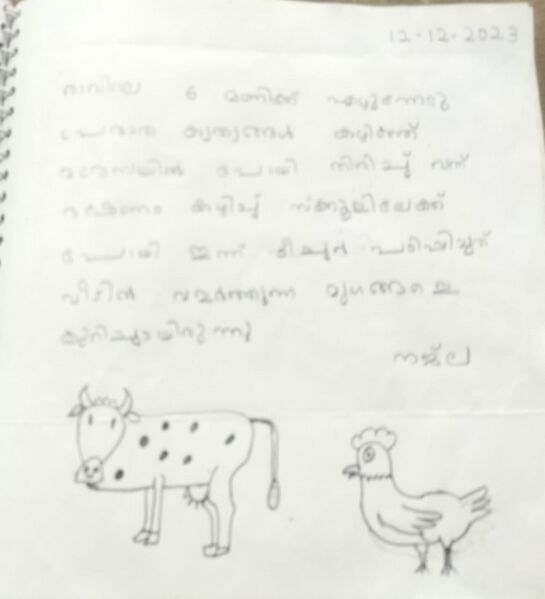 12-12-2023
രാവിലെ 6 മണിക്ക് എഴുന്നേറ്റു
പ്രഭാത കൃത്യങ്ങൾ കഴിഞ്ഞ്
മദ്രസയിൽ പോയി തിരിച്ച് വന്ന്
ഭക്ഷണം കഴിച്ച് സ്കൂളിലേക്ക്
പോയി ഇന്ന് ടീച്ചർ പഠിപ്പിച്ചത്
വീട്ടിൽ വളർത്തുന്ന മൃഗങ്ങളെ
കുറിച്ചായിരുന്നു
നജ്ല